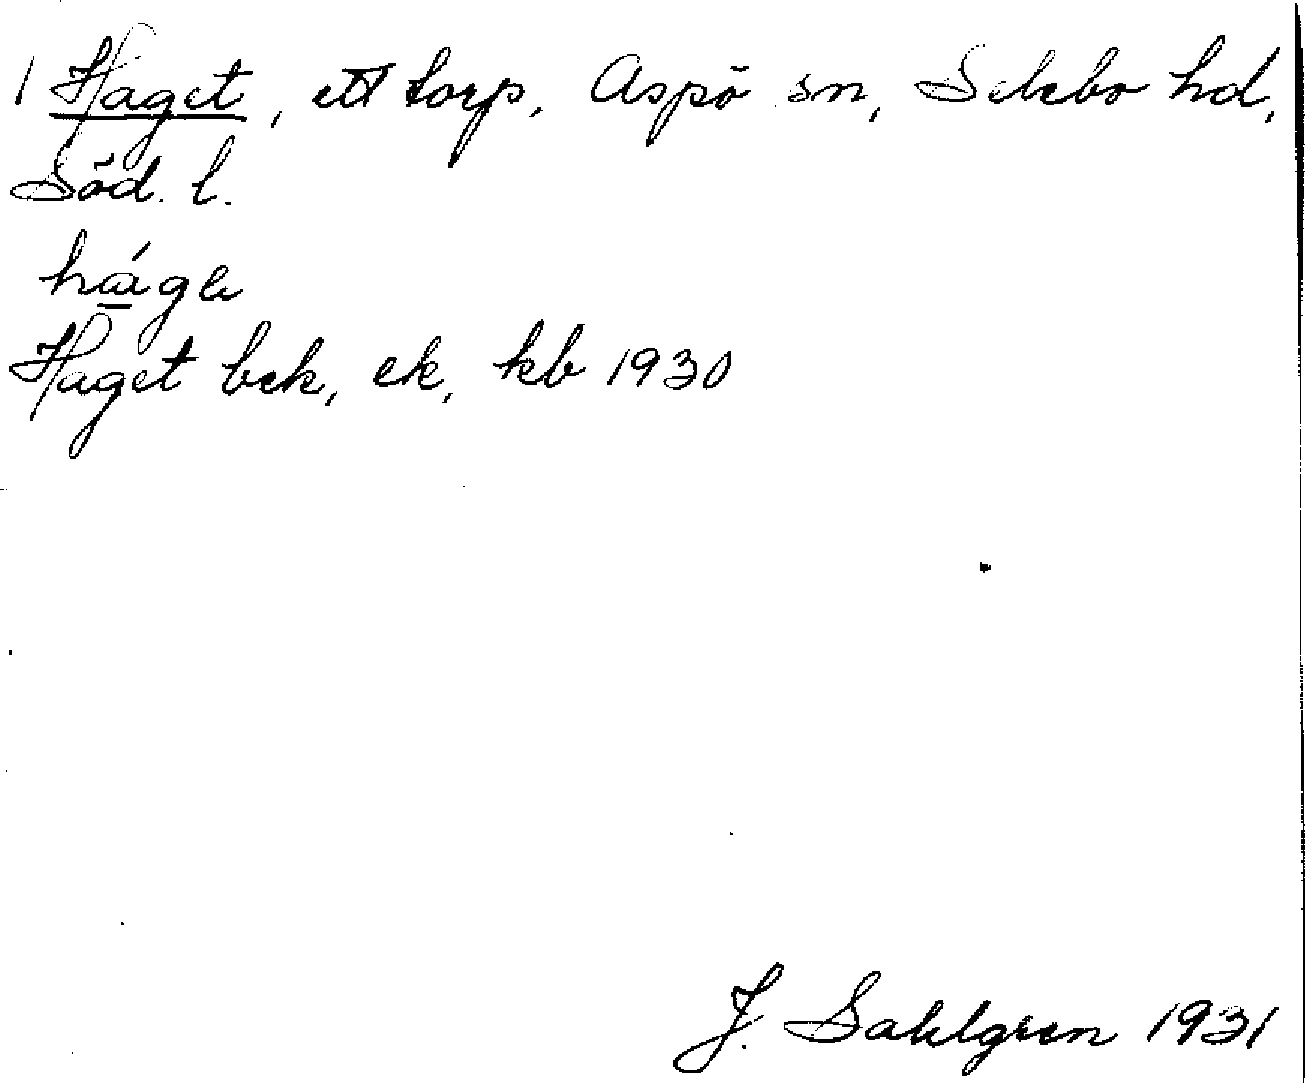 1 Haget, ett torp, Aspö sn, Selebo hd,
Söd. l.
Haget bek, ek, kb 1930
J. Sahlgren 1931